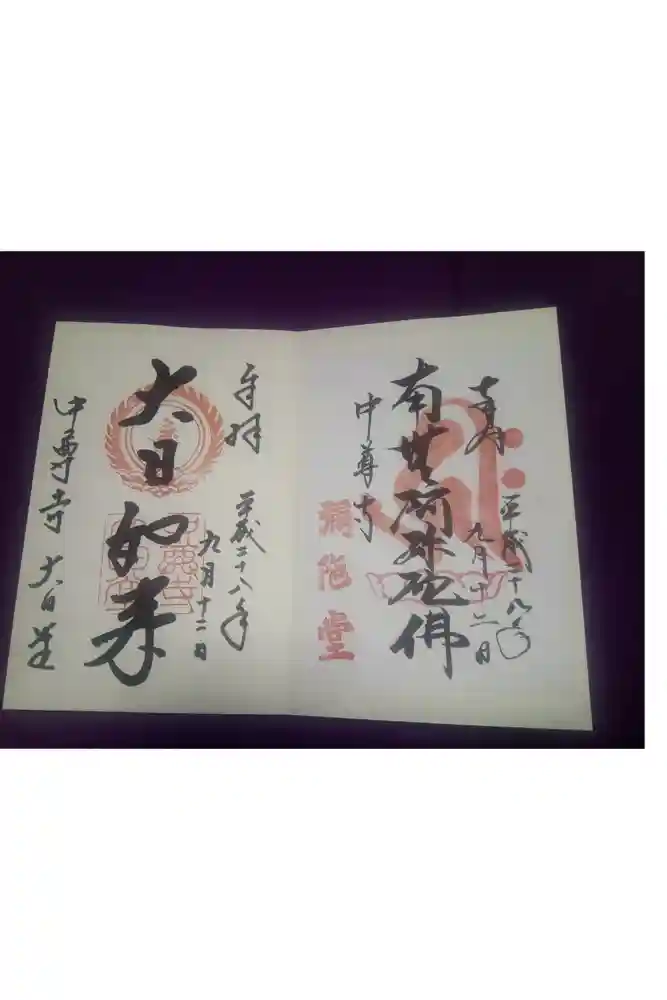 奉拝
平成二十八年
九月十二日
南無阿弥陀佛
中尊寺
彌陀堂
奉拝
平成二十八年
九月十二日
大日如来
中尊寺 大日堂